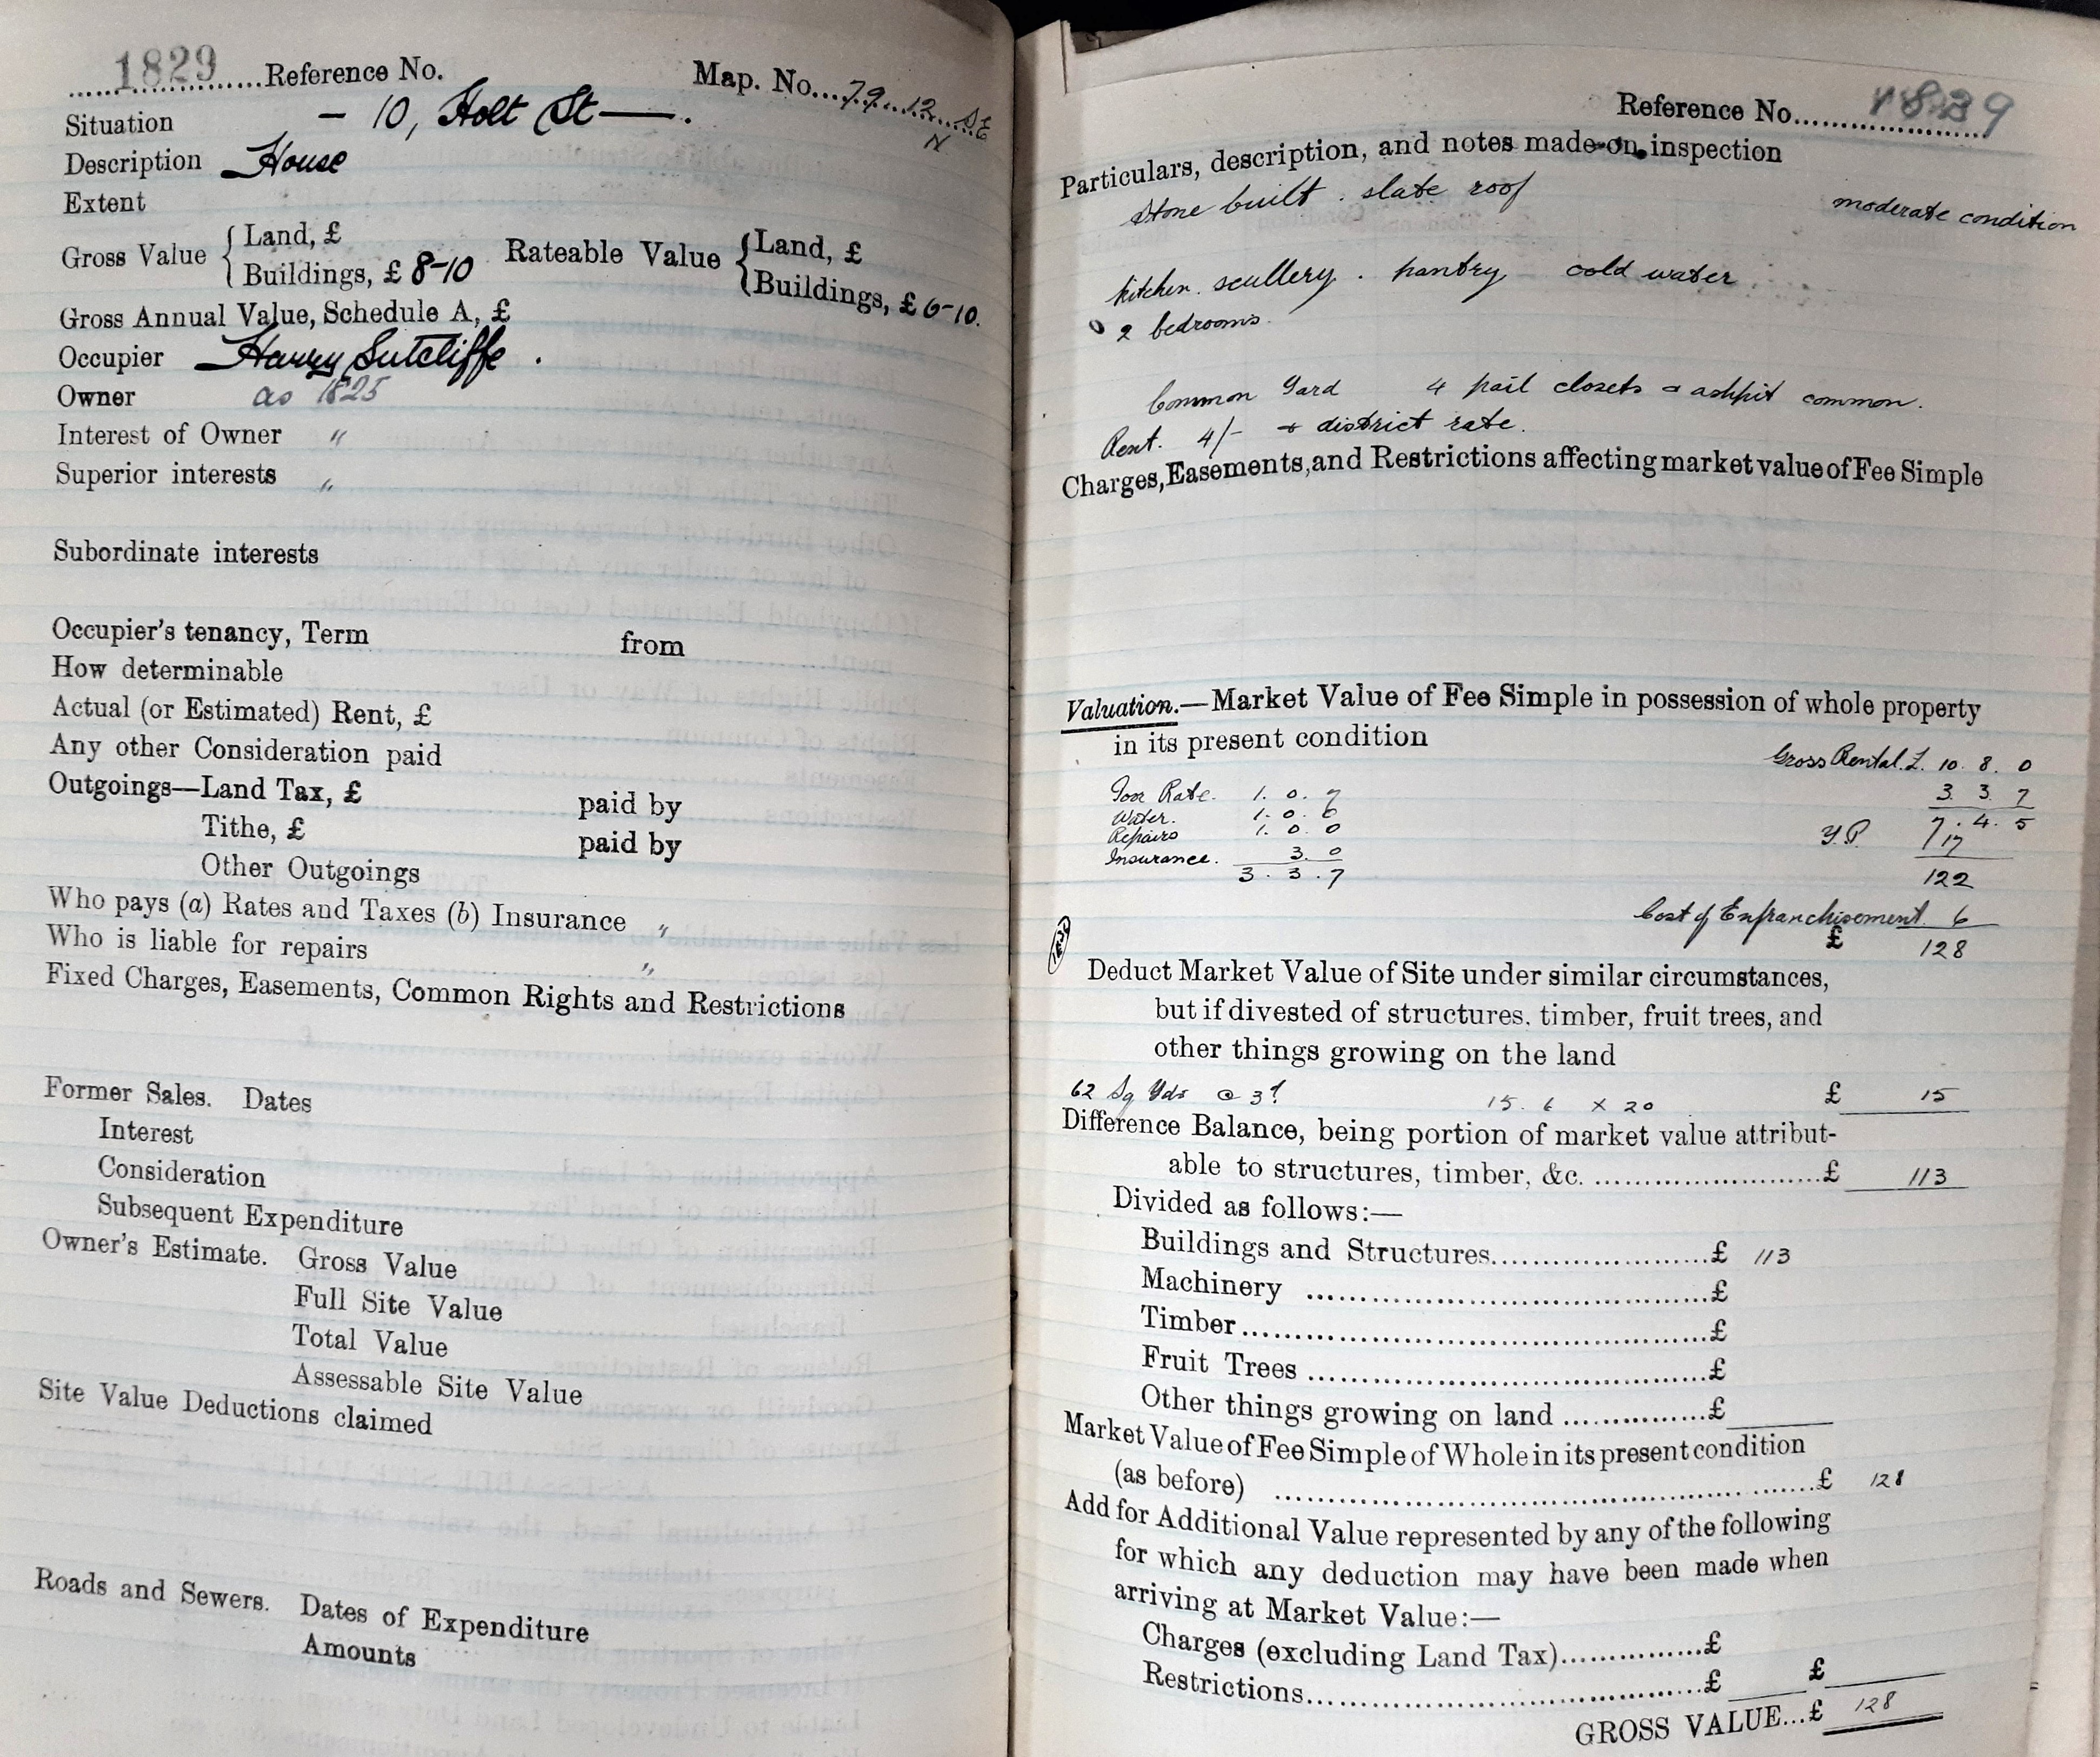 1829 Reference No. Map. No. 79.12 SE
N
Situation - 10, Holt St —.
Description House
Extent
Gross Value { Land, £ Rateable Value { Land, £
Buildings, £ 8-10 Buildings, £ 6-10.
Gross Annual Value, Schedule A, £
Occupier Harry Sutcliffe.
Owner as 1825
Interest of Owner "
Superior interests "
Subordinate interests
Occupier's tenancy, Term from
How determinable
Actual (or Estimated) Rent, £
Any other Consideration paid
Outgoings—Land Tax, £ paid by
Tithe, £ paid by
Other Outgoings
Who pays (a) Rates and Taxes (b) Insurance "
Who is liable for repairs "
Fixed Charges, Easements, Common Rights and Restrictions
Former Sales. Dates
Interest
Consideration
Subsequent Expenditure
Owner's Estimate. Gross Value
Full Site Value
Total Value
Assessable Site Value
Site Value Deductions claimed
Roads and Sewers. Dates of Expenditure
Amounts
Reference No.
Particulars, description, and notes made on inspection
Stone built. slate roof moderate condition
kitchen. scullery. pantry cold water
2 bedrooms.
Common Yard 4 pail closets & ashpit common.
Rent. 4/- + district rate.
Charges, Easements, and Restrictions affecting market value of Fee Simple
Valuation.—Market Value of Fee Simple in possession of whole property
in its present condition
Gross Rental £ 10. 8. 0
Poor Rate. 1. 0. 7 3. 3. 7
Water. 1. 0. 0 7. 4. 5
Repairs 1. 0. 0 Y.P. 17
Insurance. 3. 0
3. 3. 7 122
Cost of Enfranchisement 6
£ 128
Deduct Market Value of Site under similar circumstances,
but if divested of structures, timber, fruit trees, and
other things growing on the land
62 Sq Yds @ 3d 15. 6 x 20 £ 15
Difference Balance, being portion of market value attribut-
able to structures, timber, &c. £ 113
Divided as follows:—
Buildings and Structures £ 113
Machinery £
Timber £
Fruit Trees £
Other things growing on land £
Market Value of Fee Simple of Whole in its present condition
(as before) £ 128
Add for Additional Value represented by any of the following
for which any deduction may have been made when
arriving at Market Value:—
Charges (excluding Land Tax) £
Restrictions £ £
GROSS VALUE...£ 128